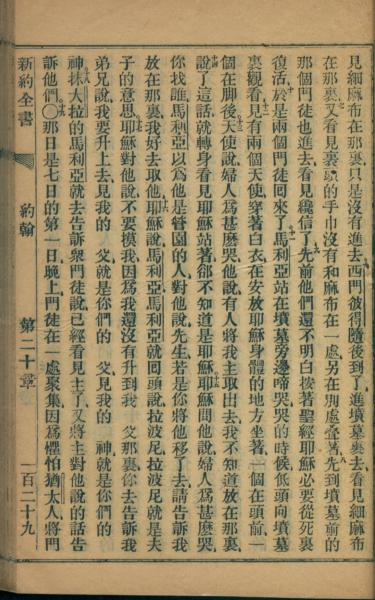 見細麻布在那裏只是沒有進去西門彼得隨後到了進墳墓裏去看見細麻布
在那裏又看見裹頭的手巾沒有和麻布在一處另在別處疊著先到墳墓前的
那個門徒也進去看見纔信了先前他們還不明白按著聖經耶穌必要從死裏
復活於是兩個門徒回來了馬利亞站在墳墓旁邊啼哭哭的時候低頭向墳墓
裏觀看見有兩個天使穿著白衣在安放耶穌身體的地方坐著一個在頭前一
個在脚後天使說婦人爲甚麽哭他說有人將我主取出去我不知道放在那裏
說了這話就轉身看見耶穌站著郤不知道是耶穌耶穌問他說婦人爲甚麽哭
你找誰馬利亞以爲他是管園的人對他說先生若是你將他移了去請告訴我
放在那裏我好去取他耶穌說馬利亞馬利亞就回頭說拉波尼拉波尼就是夫
子的意思耶穌對他說不要摸我因爲我還沒有升到我 父那裏你去告訴我
弟兄說我要升上去見我的 父就是你們的 父見我的 神就是你們的
神抹大拉的馬利亞就去告訴衆門徒說已經看見主了又將主對他說的話告
訴他們〇那日是七日的第一日晚上門徒在一處聚集因爲懼怕猶太人將門
新約全書 約翰 第二十章 一百二十九